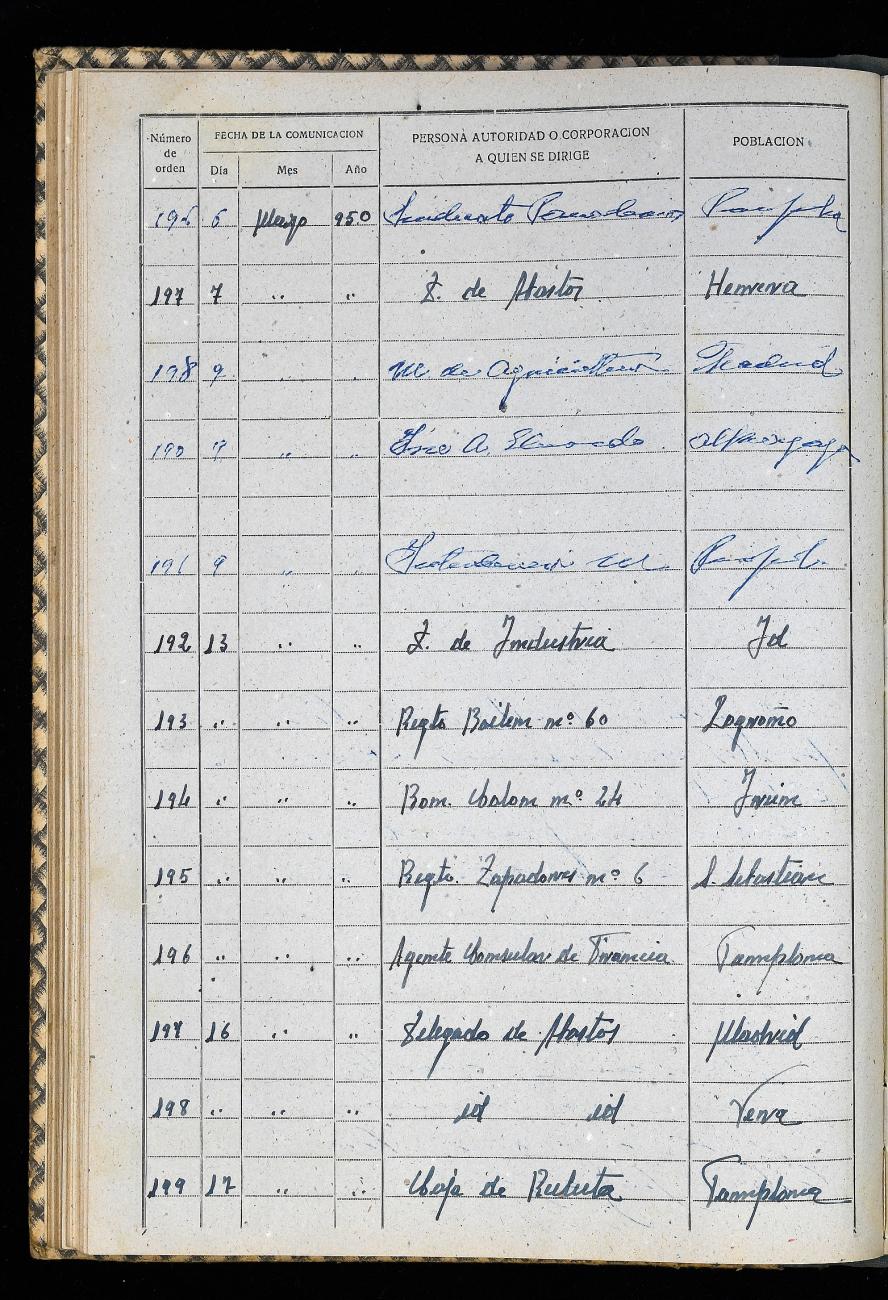 Número de orden FECHA DE LA COMUNICACION PERSONA AUTORIDAD O CORPORACION A QUIEN SE DIRIGE POBLACION
Día Mes Año
6 Mayo 950
197 7 " " D. de Abastos Herrera
198 9 " " M. de Agricultura Madrid
190 9 " "
191 9 " "
192 13 " " D. de Industria Id
193 " " " Regto Bailen nº 60 Logroño
194 " " " Bon. Colon nº 24 Irun
195 " " " Regto. Zapadores nº 6 S. Sebastian
196 " " " Agente Consular de Francia Pamplona
197 16 " " Delegado de Abastos Madrid
198 " " " id id Vera
199 17 " " Caja de Recluta Pamplona